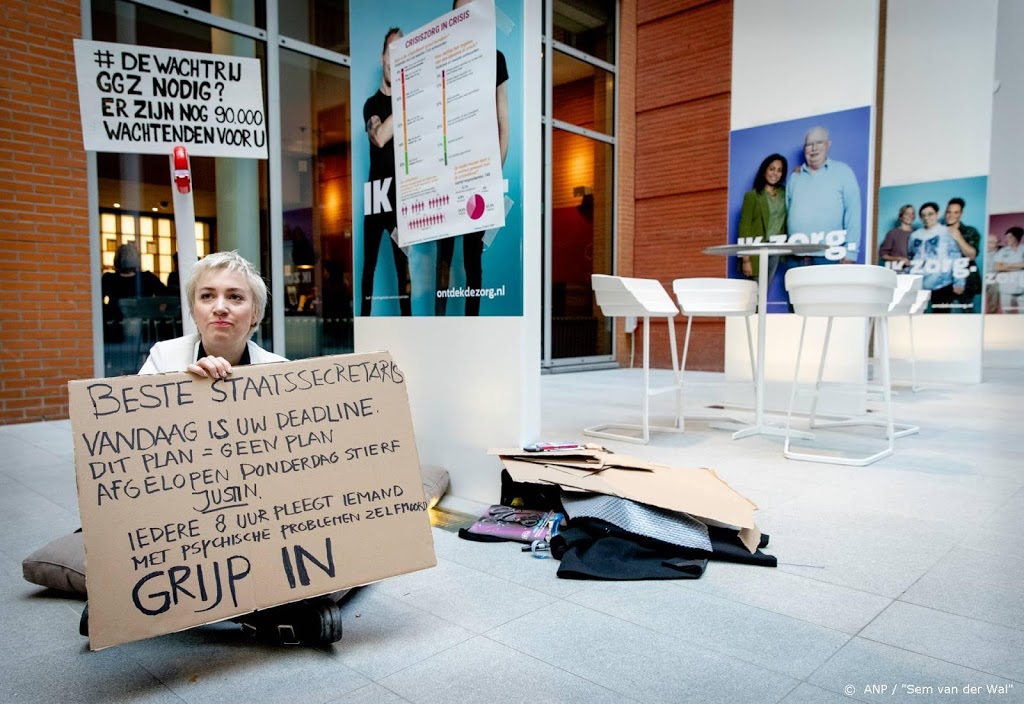 # DE WACHTRIJ
GGZ NODIG?
ER ZIJN NOG 90.000
WACHTENDEN VOOR U
CRISISZORG IN CRISIS
IK
ontdekdezorg.nl
IK zorg.
zorg.
BESTE STAATSSECRETARIS
VANDAAG IS UW DEADLINE.
DIT PLAN = GEEN PLAN
AFGELOPEN DONDERDAG STIERF
JUSTIN.
IEDERE 8 UUR PLEEGT IEMAND
MET PSYCHISCHE PROBLEMEN ZELFMOORD
GRIJP IN
© ANP / "Sem van der Wal"